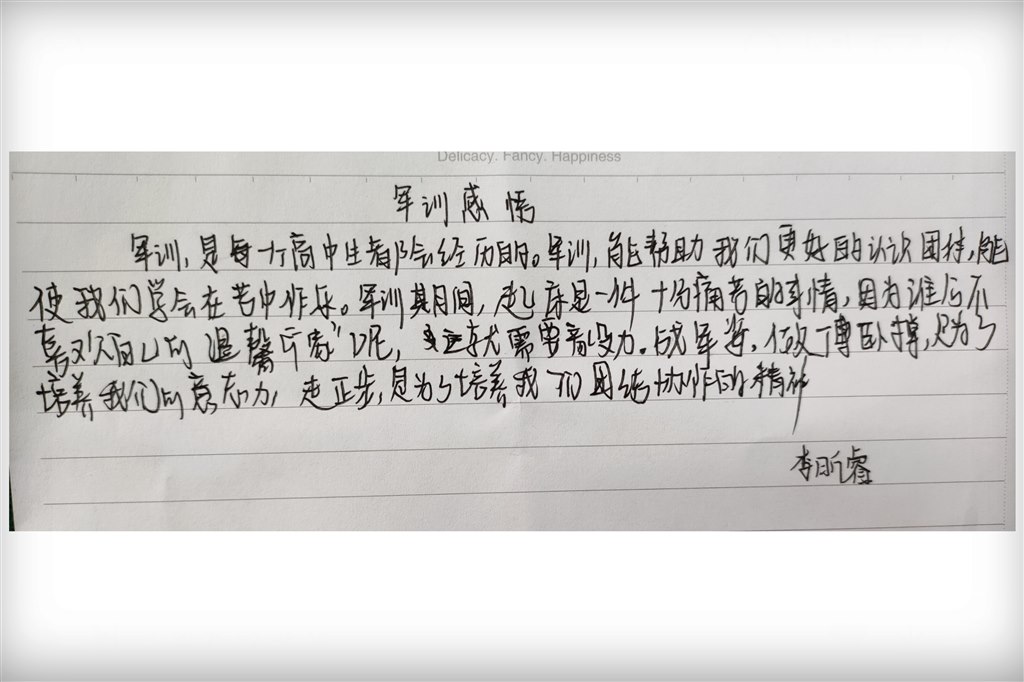 Delicacy. Fancy. Happiness
军训感悟
军训,是每个高中生都会经历的。军训,能帮助我们更好的认识团结,能
使我们学会在苦中作乐。军训其月间,起床是一件十分痛苦的事情,因为谁会不
喜欢自己的温馨"家"呢,这就需要毅力。站军姿,做俯卧撑,是为了
培养我们的意志力,走正步,是为了培养我们团结协作的精神
李昕睿